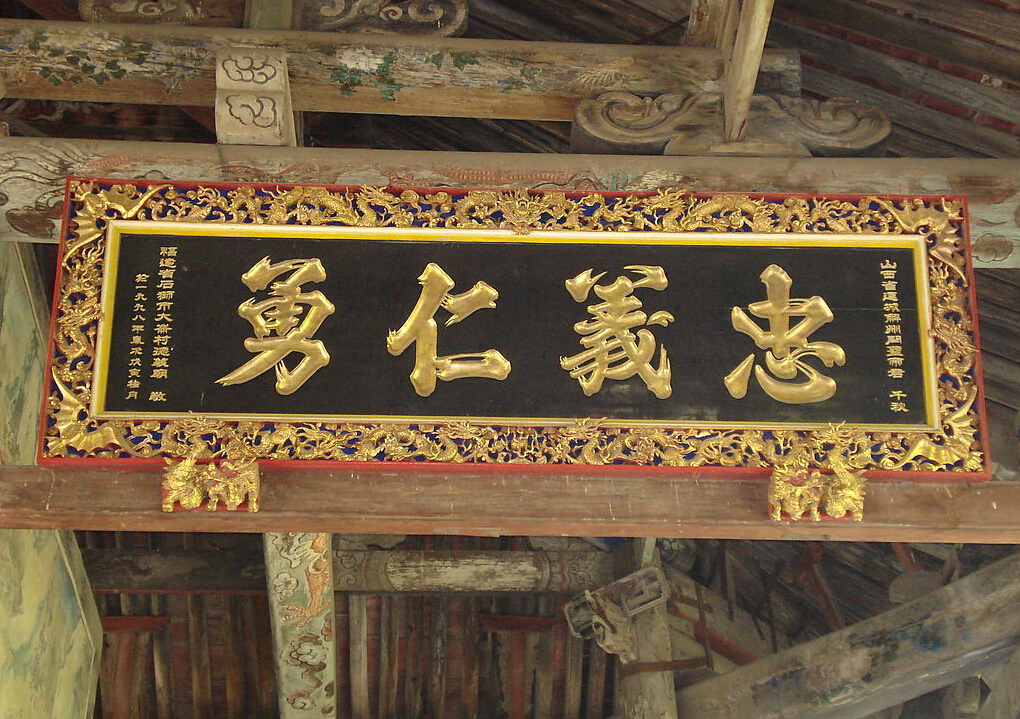 山西省運城解州關聖帝君 千秋
忠義仁勇
福建省石獅市大崙村忠義廟 敬
於一九九八年歲次戊寅桂月